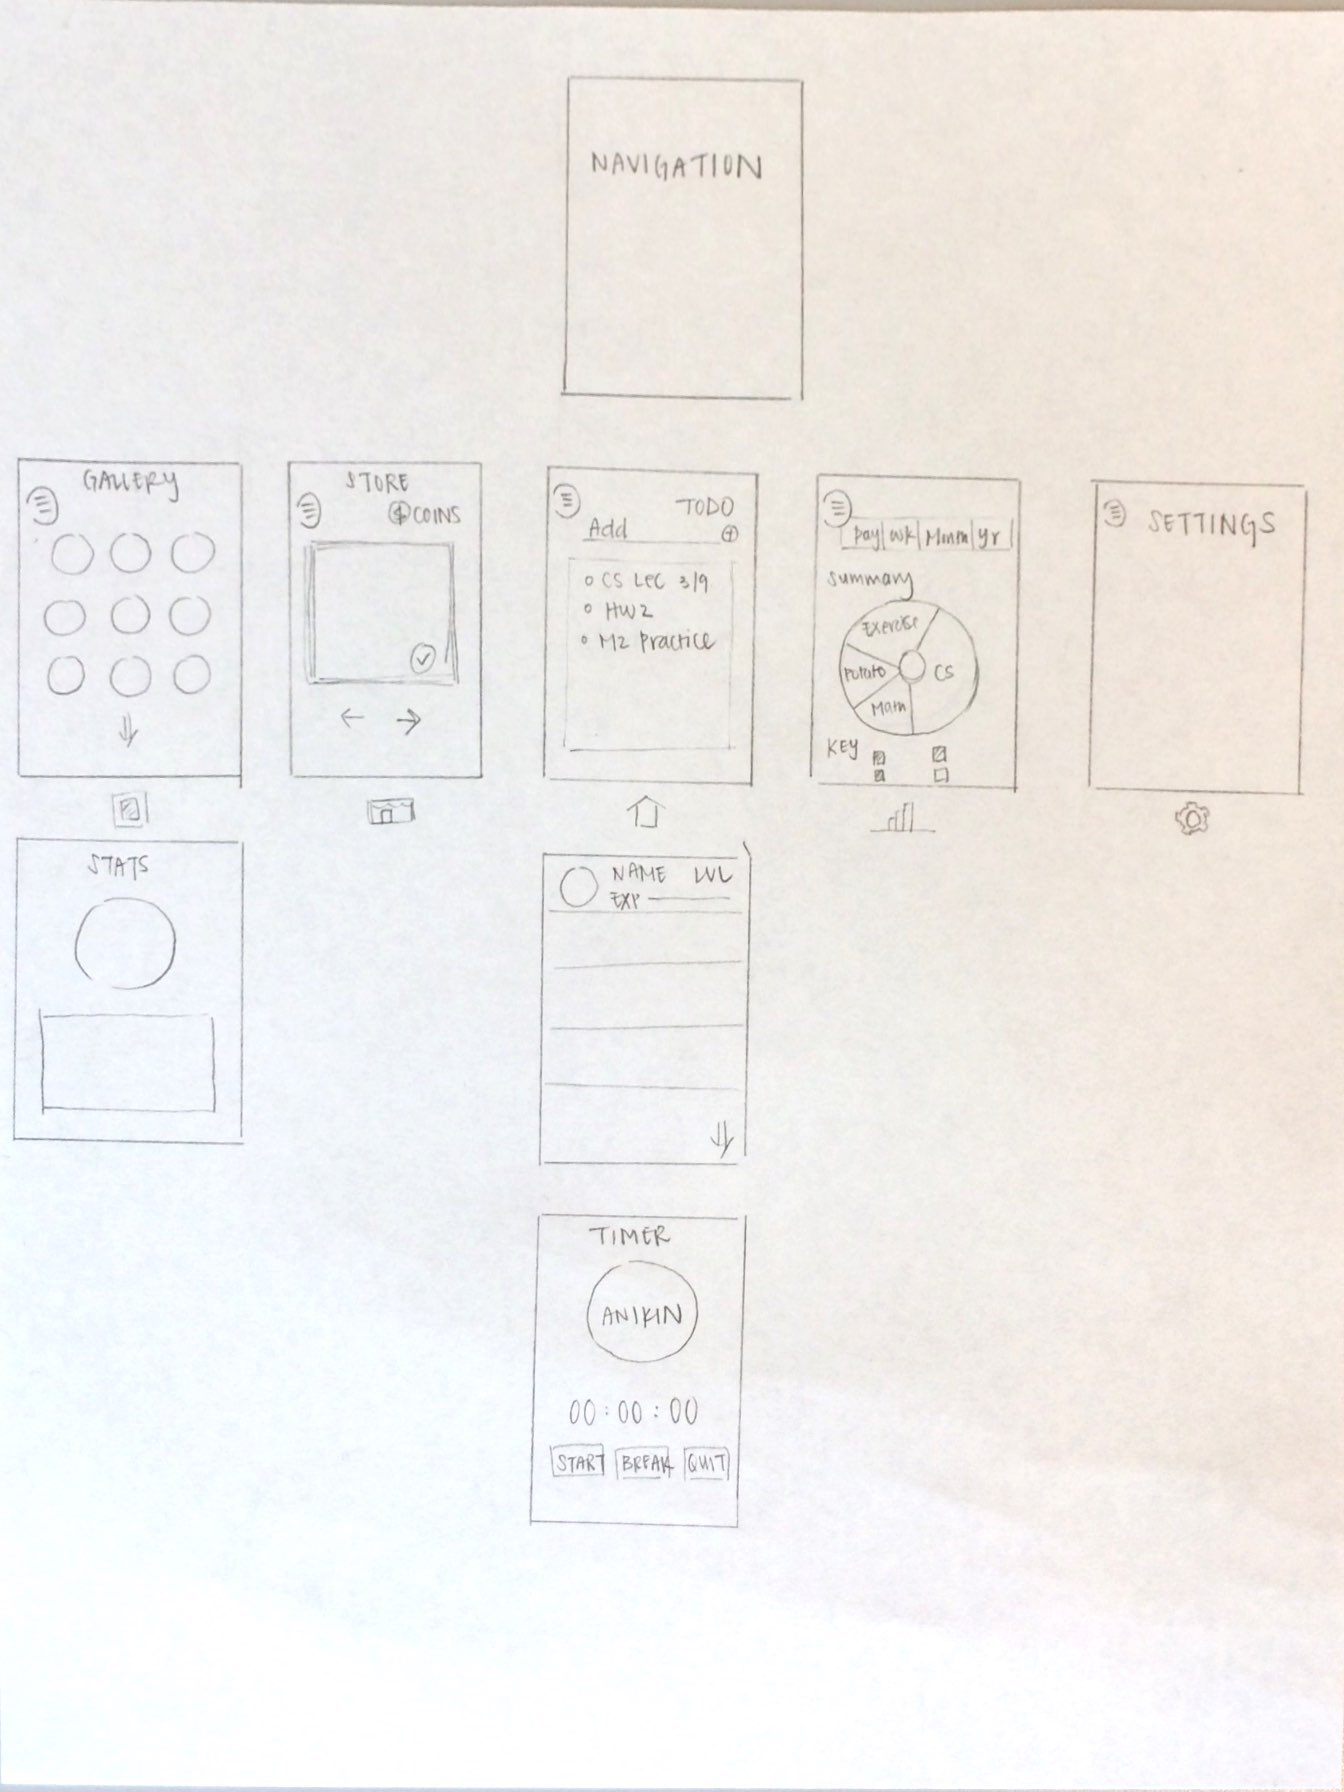 NAVIGATION
GALLERY
STORE
$ COINS
TODO
Add
CS LEC 3/9
HW2
M2 Practice
Day wk Month yr
Summary
Exercise
CS
Potato
Math
KEY
SETTINGS
STATS
NAME LVL
EXP
TIMER
ANIKIN
00:00:00
START BREAK QUIT